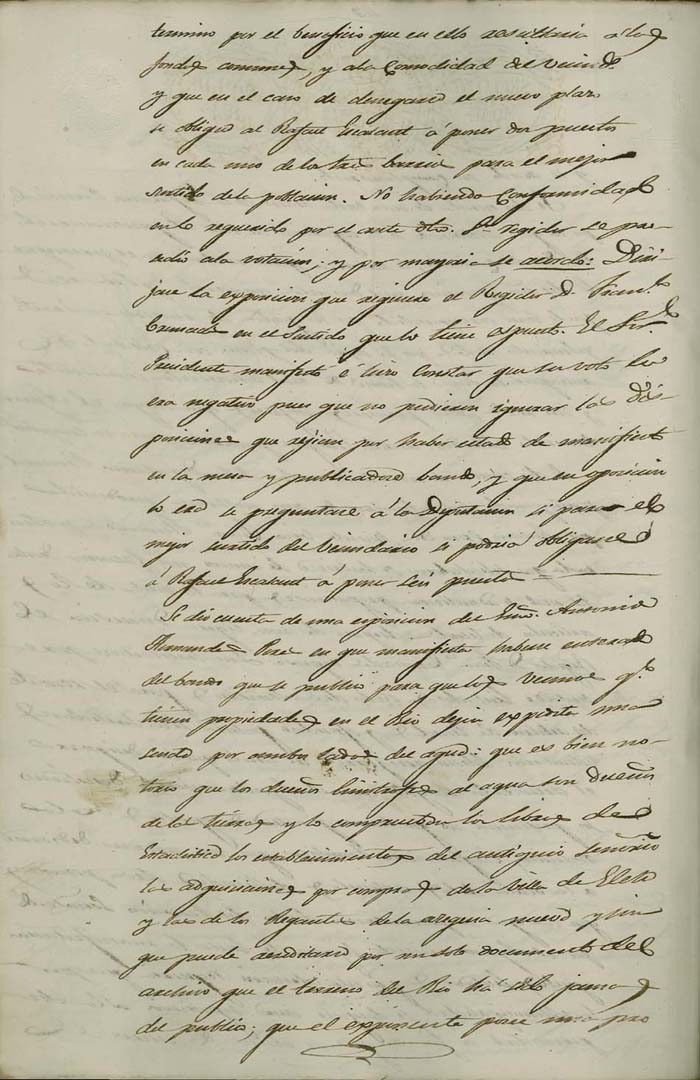 termino por el beneficio que en ello resultaria a los
fondos comunes, y a la Comodidad del vecind.º
y que en el caso de denegarse el nuevo plazo
se obligue al Rafael á poner dos puestos
en cada uno de los tres barrios para el mejor
surtido de la poblacion. No habiendo Conformidad
en lo requerido por el ante dho. Sr. regidor se pro-
cedió a la votacion; y por mayoria se acordo: Diri-
jase la exposicion que requiere el Regidor D. Fran.co
en el Sentido que lo tiene espuesto. El Sor.
Presidente manifestó é hizo Constar que su voto
era negativo pues que no pudieron ignorar las dis-
posiciones que rejian por haber estado de manifiesto
en la mesa y publicadose bando, y que en oposicion
se preguntase á la Diputacion si para el
mejor surtido del vecindario si podria obligarse
á Rafael á poner seis puestos
Se dio cuenta de una esposicion de Antonio
Fernandez Perez en que manifiesta haberse enterado
del bando que se publicó para que los vecinos q.e
tienen propiedades en el Rio dejen expedita una
senda por ambos lados del agua: que es bien no-
torio que los dueños limitrofes al agua son dueños
de las tierras y lo comprueban los libros de
Estadistica los establecimientos del antiguo Señorio
las adquisiciones por compras de la Villa de Elche
y las de los Regantes de la acequia nueva y sin
que puede acreditarse por un solo documento del
archivo que el terreno del Rio ha sido jamas
del publico; que el exponente posee una pro